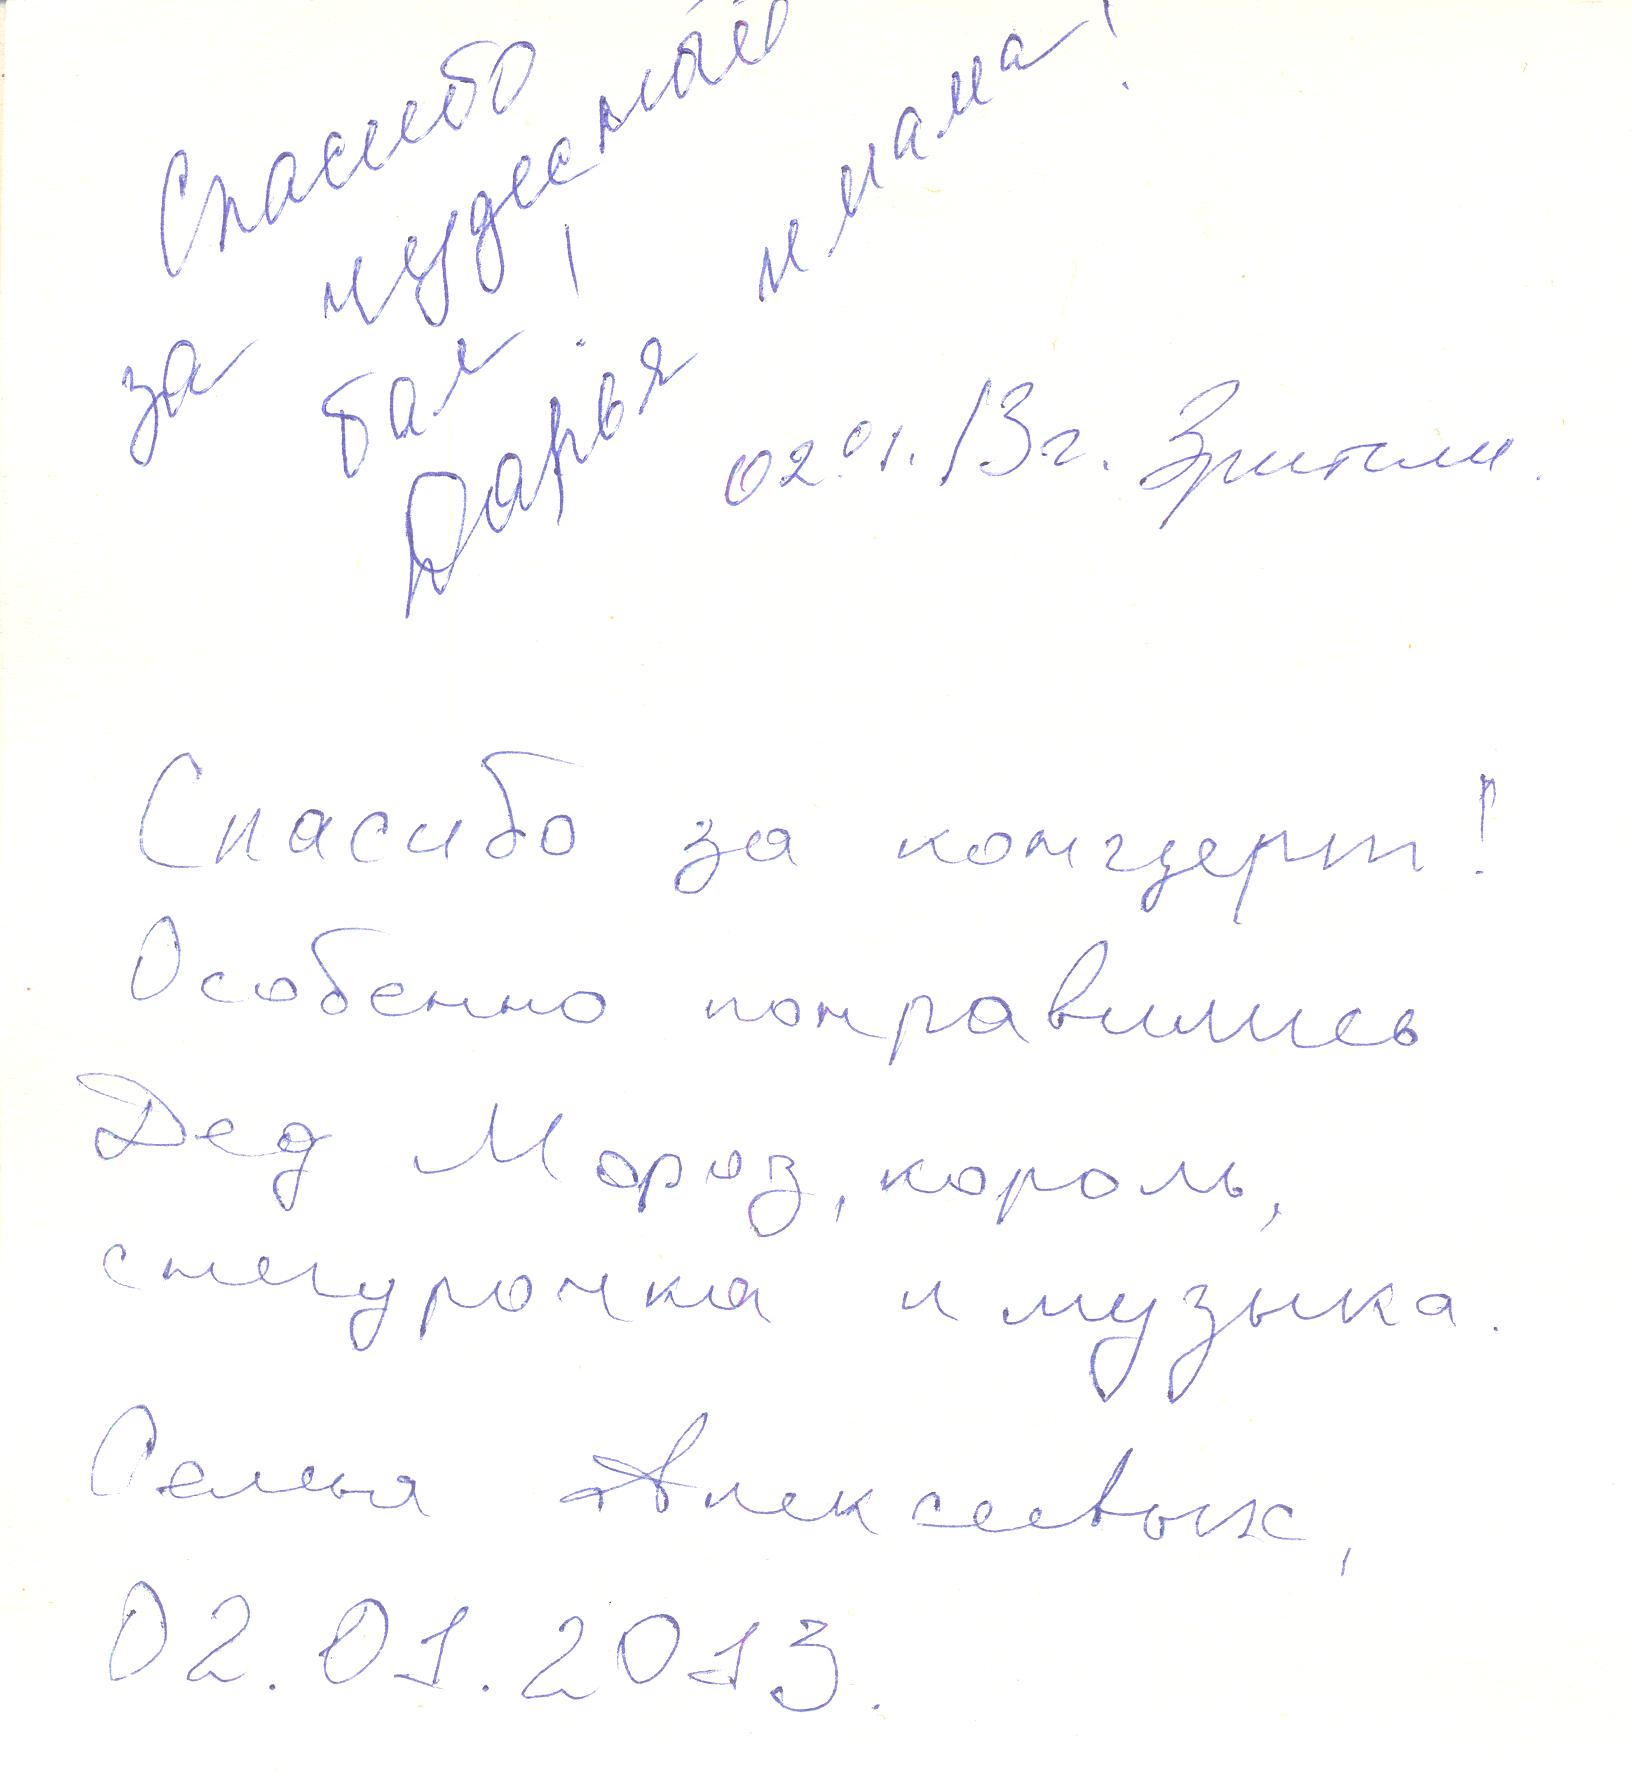 Спасибо
за чудесный
бал!
Дарья и мама!
02.01.13г. Зрители.
Спасибо за концерт!
Особенно понравились
Дед Мороз, король,
снегурочка и музыка.
Семья Алексеевых,
02.01.2013.